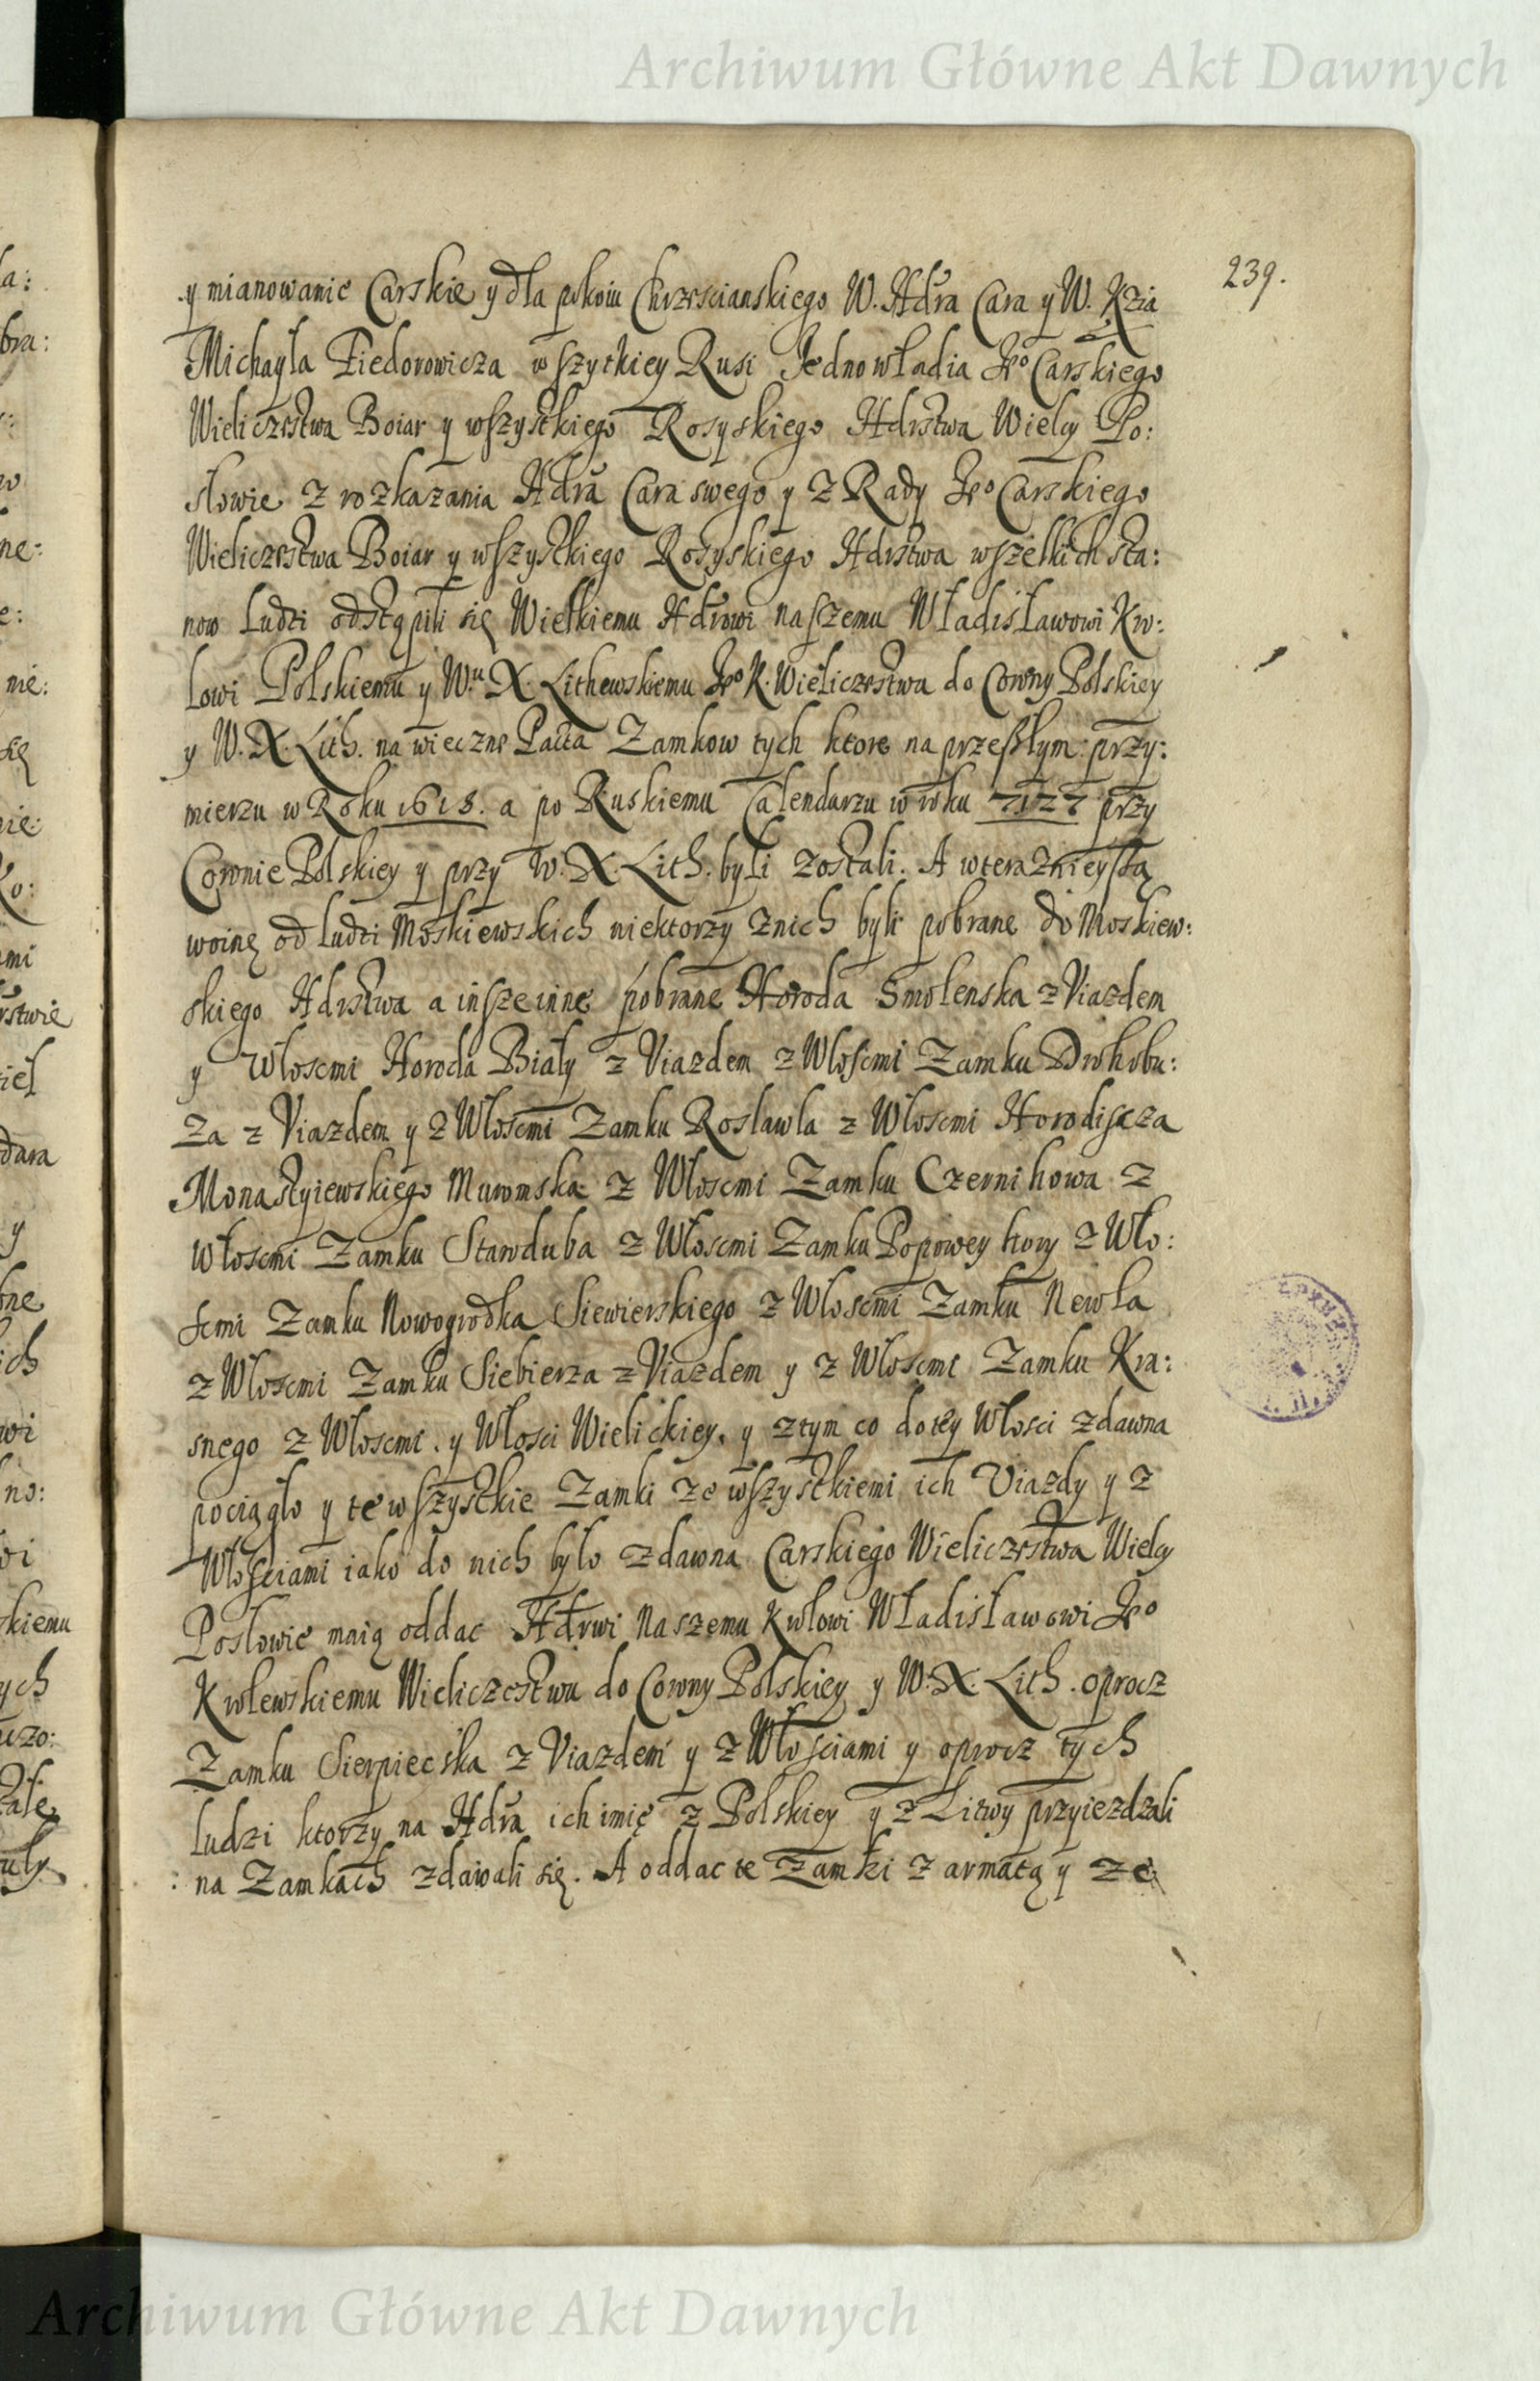 Archiwum Główne Akt Dawnych
239.
y mianowanie Carskie y dla pokoiu Chrzescianskiego W. Hdra Cara y W. Kzia
Michayła Fiedorowicza wszytkiey Rusi Jednowładia Jeo Carskiego
Wieliczestwa Boiar y wszystkiego Rosyskiego Hdrstwa Wielcy Po:
słowie z rozkazania Hdra Cara swego y z Rady Jeo Carskiego
Wieliczestwa Boiar y wszystkiego Rosyskiego Hdrstwa wszelkich sta:
now ludzi odstąpili się Wielkiemu Hdrowi naszemu Władisławowi Kro:
lowi Polskiemu y W.u X. Lithewskiemu Jeo K. Wieliczestwa do Corony Polskiey
y W. X. Lith. na wieczne Pacta Zamkow tych ktore na przeszłym przy:
mierzu w Roku 1618. a po Ruskiemu Calendarzu w roku 7127 przy
Coronie Polskiey y przy W. X. Lith. byli zostali. A w teraznieyszą
woinę od ludzi Moskiewskich niektorzy z nich byli pobrane do Moskiew:
skiego Hdrstwa a insze inne pobrane Horoda Smolenska z Viazdem
y Włoscmi Horoda Biały z Viazdem z Włoscmi Zamku Drohobu:
za z Viazdem y z Włoscmi Zamku Rosławla z Włoscmi Horodiscza
Monastyiewskiego Muromska z Włoscmi Zamku Czernihowa z
Włoscmi Zamku Staroduba z Włoscmi Zamku Popowey hory z Wło:
scmi Zamku Nowogrodka Siewierskiego z Włoscmi Zamku Newla
z Włoscmi Zamku Siebierza z Viazdem y z Włoscmi Zamku Kra:
snego z Włoscmi. y Włosci Wielickiey, y z tym co do tey Włosci zdawna
pociągło y te wszystkie Zamki ze wszystkiemi ich Viazdy y z
Włosciami iako do nich było zdawna Carskiego Wieliczestwa Wielcy
Posłowie maią oddac Hdrwi Naszemu Krolowi Władisławowi Jeo
Krolewskiemu Wieliczestwu do Corony Polskiey y W. X. Lith. oprocz
Zamku Sierpiecska z Viazdem y z Włosciami y oprocz tych
ludzi ktorzy na Hdra ich imię z Polskiey y z Litwy przyiezdzali
: na Zamkach zdawali się. A oddac te Zamki z armatą y ze
Archiwum Główne Akt Dawnych